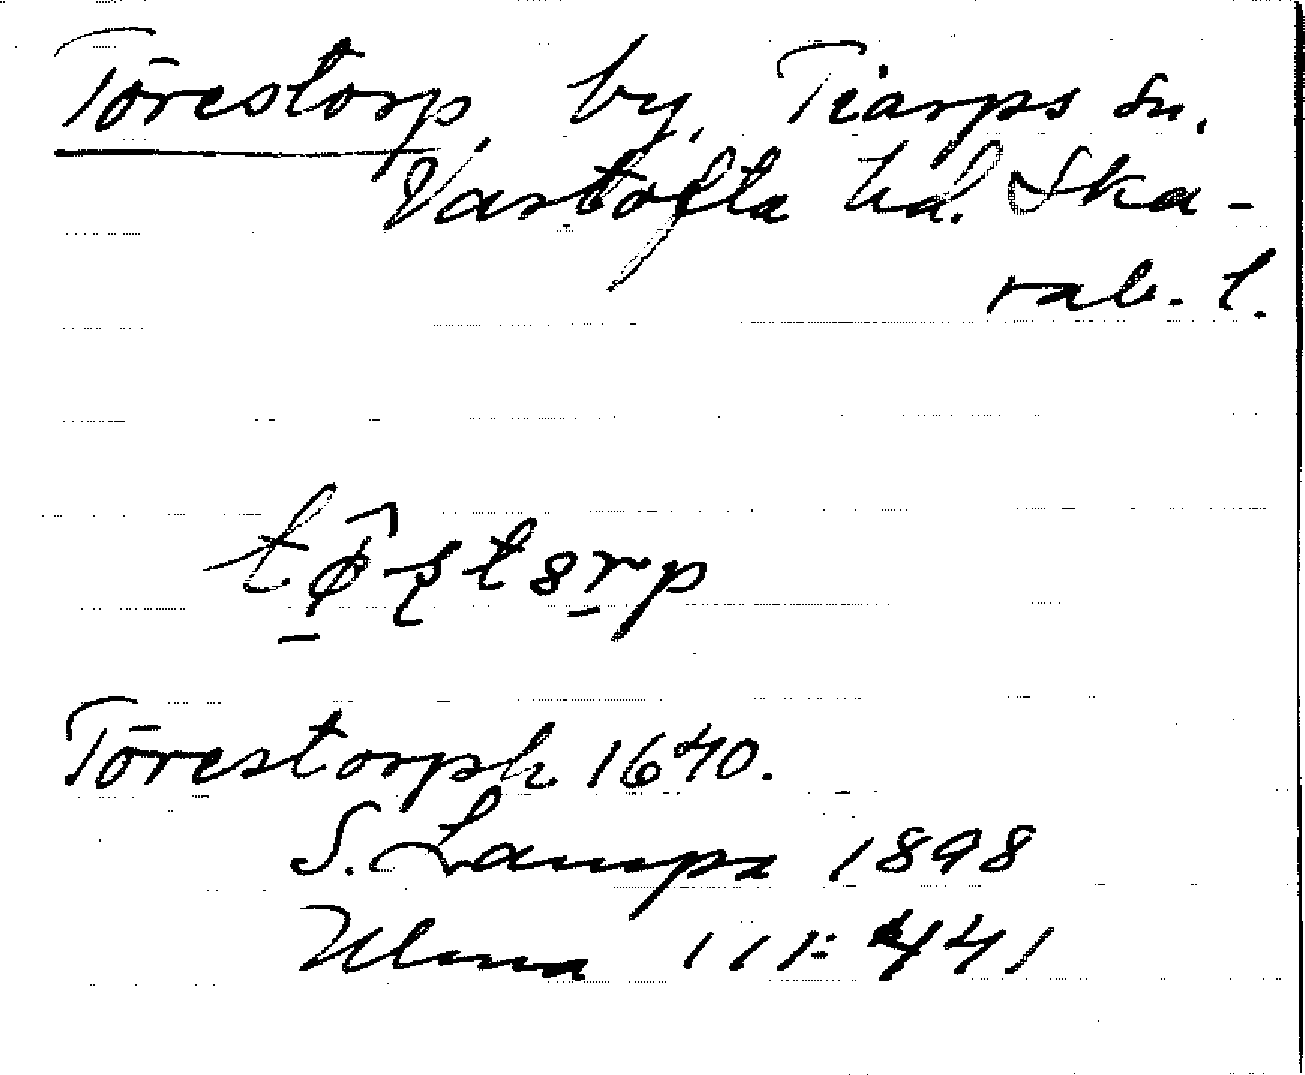 Torestorp, by, Tiarps sn.
Vartofta hd. Ska-
rab. l.
Torestorph 1640.
S. Lampa 1898
Ulma 111:441